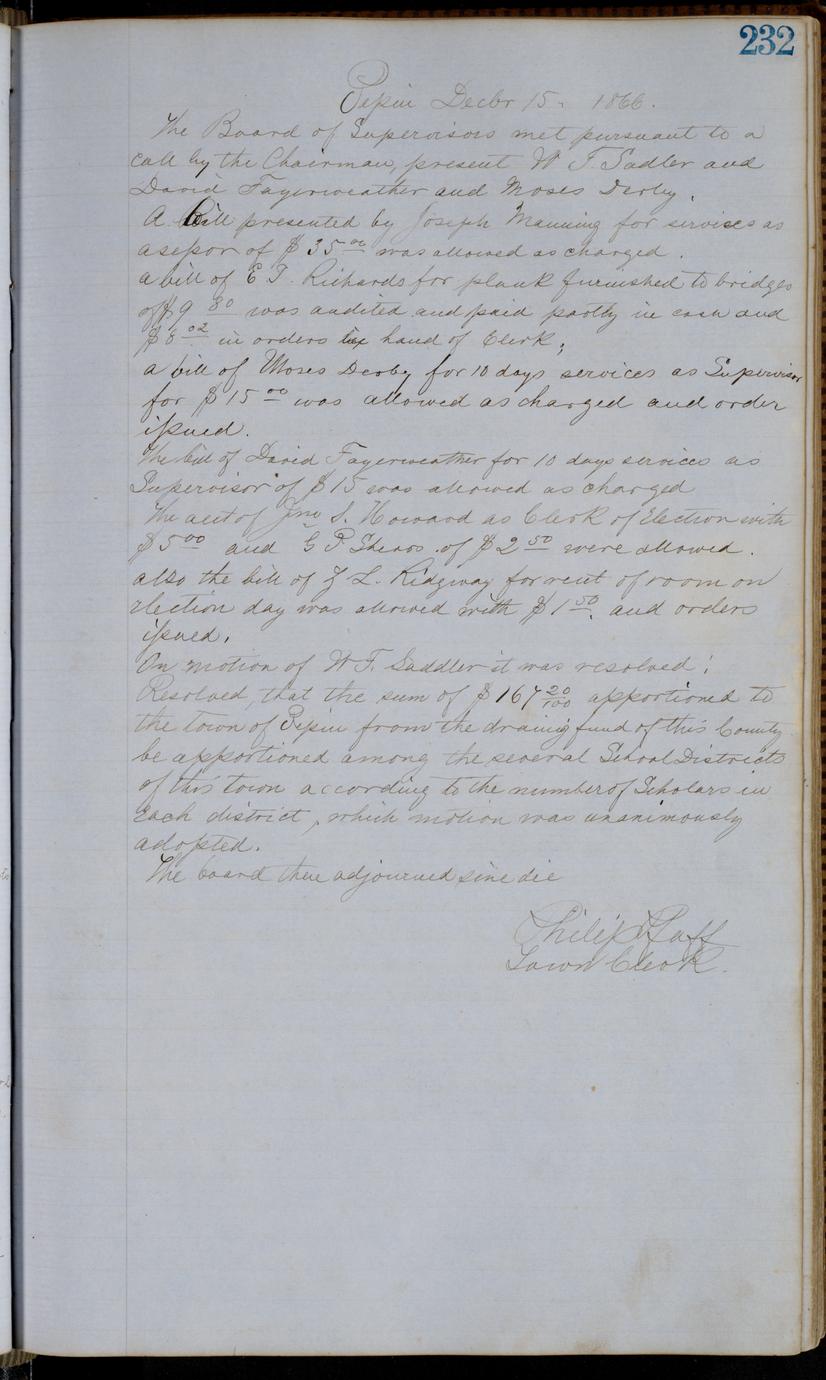 232
Pepin Decbr 15. 1866.
The Board of Supervisors met pursuant to a
call by the Chairman, present W T. Sadler and
David Fayerweather and Moses Derby.
A bill presented by Joseph Manning for services as
asessor of $35 00 was allowed as charged.
a bill of E T. Richards for plank furnished to bridges
of $9 80 was audited and paid partly in cash and
$8 02 in orders in hand of Clerk;
a bill of Moses Derby for 10 days services as Supervisor
for $15 00 was allowed as charged and order
issued.
The bill of David Fayerweather for 10 days services as
Supervisor of $15 was allowed as charged
The act of Jno S. Howard as Clerk of Election with
$5 00 and G P. of $2 50 were allowed.
also the bill of L. Ridgway for rent of room on
election day was allowed with $1 50. and orders
issued.
On motion of W T. Saddler it was resolved;
Resolved, that the sum of $167 20/100 apportioned to
the town of Pepin from the draing fund of this County
be apportioned among the several School Districts
of this town according to the number of Scholars in
each district, which motion was unanimously
adopted.
The board then adjourned sine die
Philip Pfaff
Town Clerk.